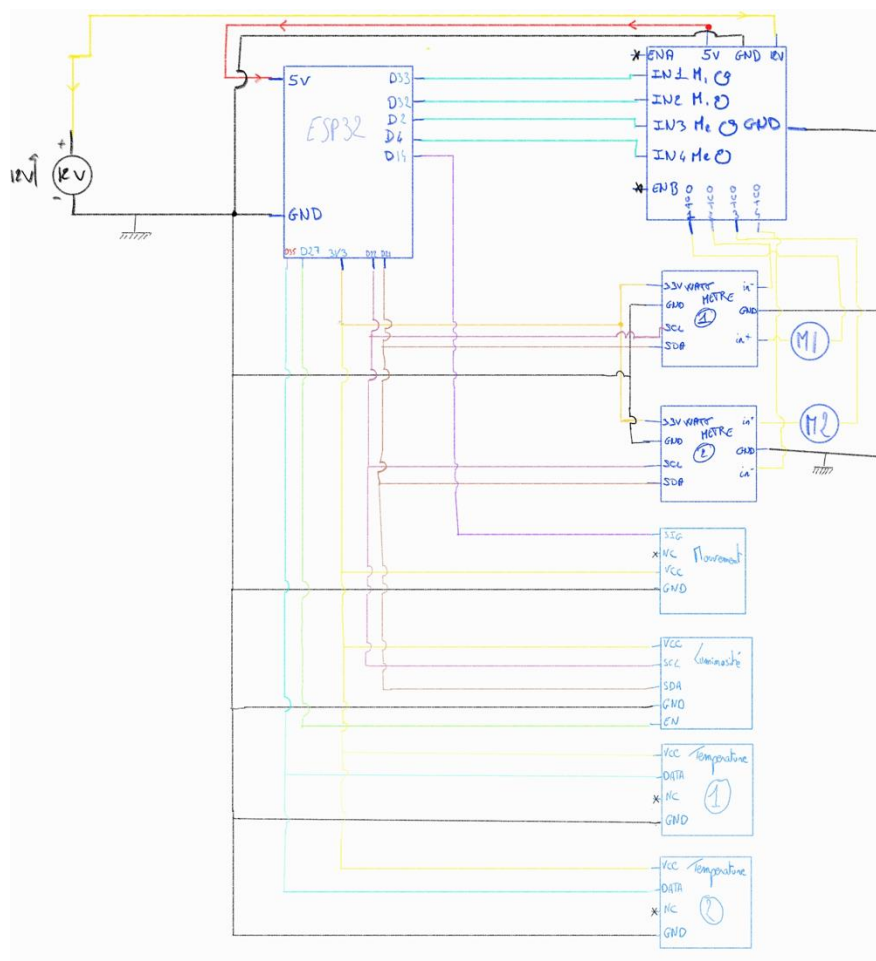 12V
12V
+
-
ESP32
5V
GND
D33
D32
D2
D4
D14
D15 D27 3V3 D22 D21
ENA 5V GND 12V
IN1 M1
IN2 M1
IN3 M2 GND
IN4 M2
ENB
OUT1 OUT2 OUT3 OUT4
33V WATT in-
GND METRE GND
SCL 1
SDA in+
M1
33V WATT in+
GND METRE GND
SCL 2 in-
SDA
M2
SIG
NC Mouvement
VCC
GND
VCC
SCL Luminosité
SDA
GND
EN
VCC Temperature
DATA 1
NC
GND
VCC Temperature
DATA
NC 2
GND